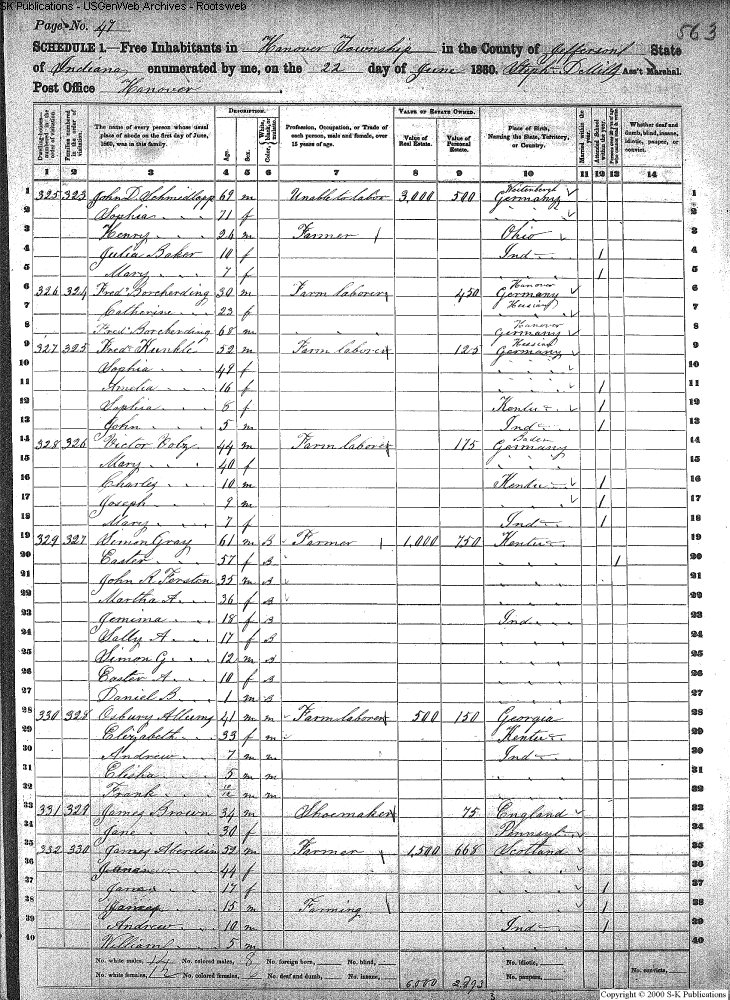 SK Publications - USGenWeb Archives - Rootsweb
Page No. 47
563
SCHEDULE 1.—Free Inhabitants in Hanover Township in the County of Jefferson State
of Indiana enumerated by me, on the 22 day of June 1860. Steph. Ass't Marshal.
Post Office Hanover
Dwelling-houses—numbered in the order of visitation
Families numbered in the order of visitation
The name of every person whose usual place of abode on the first day of June, 1860, was in this family.
DESCRIPTION.
Age.
Sex.
Color, White, black, or mulatto.
Profession, Occupation, or Trade of each person, male and female, over 15 years of age.
VALUE OF ESTATE OWNED.
Value of Real Estate.
Value of Personal Estate.
Place of Birth, Naming the State, Territory, or Country.
Married within the year.
Attended School within the year.
Whether deaf and dumb, blind, insane, idiotic, pauper, or convict.
1 2 3 4 5 6 7 8 9 10 11 12 13 14
1 325 323 John D. Schmidlapp 69 m Unable to labor 3,000 500 Germany 1
2 Sophia " " 71 f " " 2
3 Henry " " 26 m Farmer / Ohio 3
4 Julia Baker 10 f Ind 1 4
5 Mary " 7 f " " 1 5
6 326 324 Fred. Borcherding 30 m Farm laborer 450 Hanover Germany 6
7 Catherine " " 23 f Hessian " " 7
8 Fred. Borcherding 68 m " " Hanover Germany 8
9 327 325 Fred. Kunkle 52 m Farm laborer 125 Hessian Germany 9
10 Sophia " " 49 f " " 10
11 Amelia " " 16 f " " 1 11
12 Sophia " " 6 f Kentu 1 12
13 John " " 5 m Ind 1 13
14 328 326 Victor Volz 44 m Farm laborer 175 Baden Germany 14
15 Mary " " 40 f " " 15
16 Charles " " 10 m Kentu 1 16
17 Joseph " " 9 m " " 1 17
18 Mary " " 7 f Ind 1 18
19 329 327 Simon Gray 61 m B Farmer / 1,000 750 Kentu 19
20 Easter " " 57 f B " " 1 20
21 John R. Ferston 35 m B " " 21
22 Martha A. " " 36 f B " " 22
23 Jemima " " 18 f B Ind 23
24 Sally A. " " 17 f B " " 24
25 Simon G. " " 12 m B " " 25
26 Easter A. " " 10 f B " " 26
27 Daniel B. " " 1 m B " " 27
28 330 328 Osbury Allums 41 m m Farm laborer 500 150 Georgia 28
29 Elizabeth " " 33 f m Kentu 29
30 Andrew " " 7 m m Ind 30
31 Elisha " " 5 m m " " 31
32 Frank " " 10/12 m m " " 32
33 331 329 James Brown 34 m Shoemaker 75 England 33
34 Jane " " 30 f Pennsyl 34
35 332 330 James Aberdein 52 m Farmer 1,500 668 Scotland 35
36 44 f " " 36
37 17 f " " 1 37
38 James " " 15 m Farming " " 1 38
39 Andrew " " 10 m Ind 1 39
40 William " " 5 m " " 40
No. white males, 14 No. colored males, 8 No. foreign born, No. blind, No. idiotic, No. convicts,
No. white females, 12 No. colored females, 6 No. deaf and dumb, No. insane, 6,000 2,893 No. paupers,
Copyright © 2000 S-K Publications